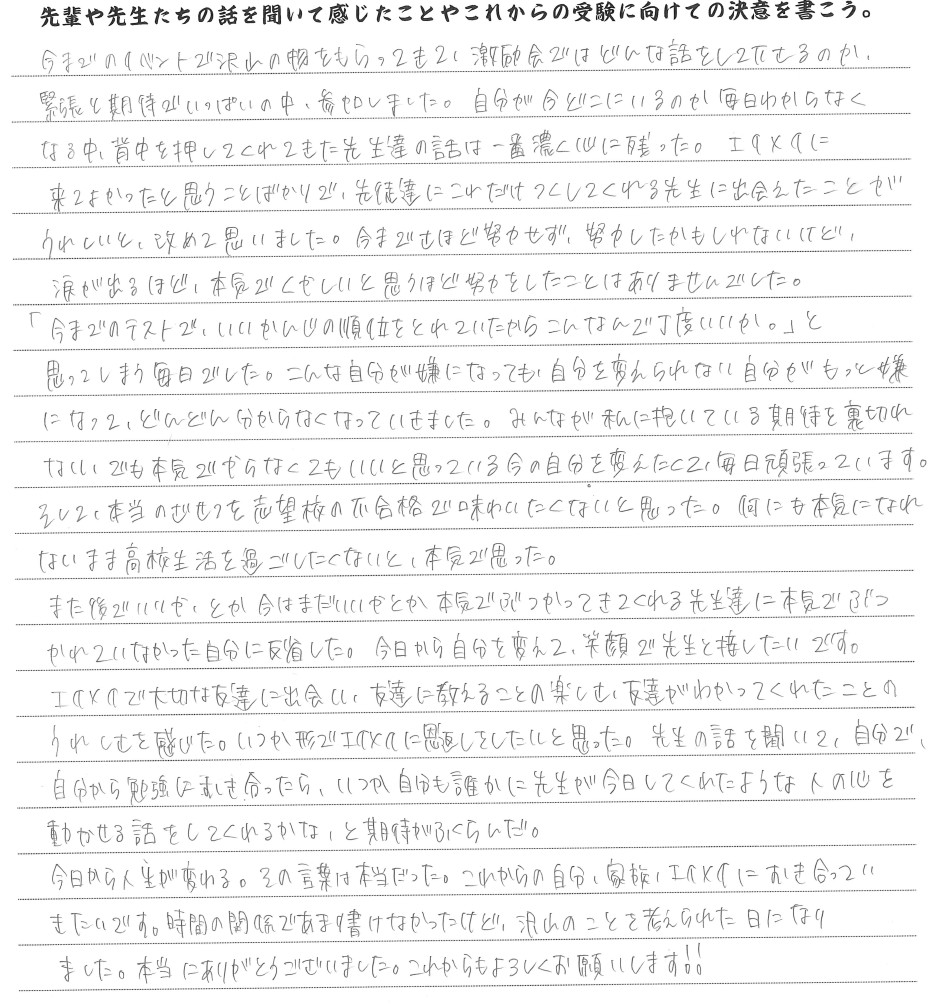 先輩や先生たちの話を聞いて感じたことやこれからの受験に向けての決意を書こう。
今までのイベントで沢山の物をもらってきて、激励会ではどんな話をして下さるのか、
緊張と期待でいっぱいの中、参加しました。自分が今どこにいるのか毎日わからなく
なる中、背中を押してくれてきた先生達の話は一番濃く心に残った。エイメイに
来てよかったと思うことばかりで、生徒達にこれだけつくしてくれる先生に出会えたことが
うれしいと、改めて思いました。今までさほど努力せず、努力したかもしれないけど、
涙が出るほど、本気でくやしいと思うほど努力をしたことはありませんでした。
「今までのテストで、いいかんじの順位をとれていたからこんなんで丁度いいか。」と
思ってしまう毎日でした。こんな自分が嫌になっても、自分を変えられない自分がもっと嫌
になって、どんどん分からなくなっていきました。みんなが私に抱いている期待を裏切れ
ない。でも本気でやらなくてもいいと思っている今の自分を変えたくて、毎日頑張っています。
そして、本当のざせつを志望校の不合格で味わいたくないと思った。何にも本気になれ
ないまま高校生活を過ごしたくないと、本気で思った。
また後でいいや、とか今はまだいいやとか本気でぶつかってきてくれる先生達に本気でぶつ
かれていなかった自分に反省した。今日から自分を変えて、笑顔で先生と接したいです。
エイメイで大切な友達に出会い、友達に教えることの楽しさ、友達がわかってくれたことの
うれしさを感じた。いつか形でエイメイに恩返しをしたいと思った。先生の話を聞いて、自分で、
自分から勉強にむき合ったら、いつか自分も誰かに先生が今日してくれたような人の心を
動かせる話をしてくれるかな、と期待がふくらんだ。
今日から人生が変わる。その言葉は本当だった。これからの自分、家族、エイメイにむき合ってい
きたいです。時間の関係であまり書けなかったけど、沢山のことを考えられた日になり
ました。本当にありがとうございました。これからもよろしくお願いします!!